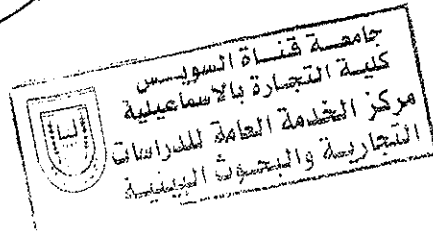 جامعة قناة السويس
كلية التجارة بالاسماعيلية
مركز الخدمة العامة للدراسات
التجارية والبحوث البيئية